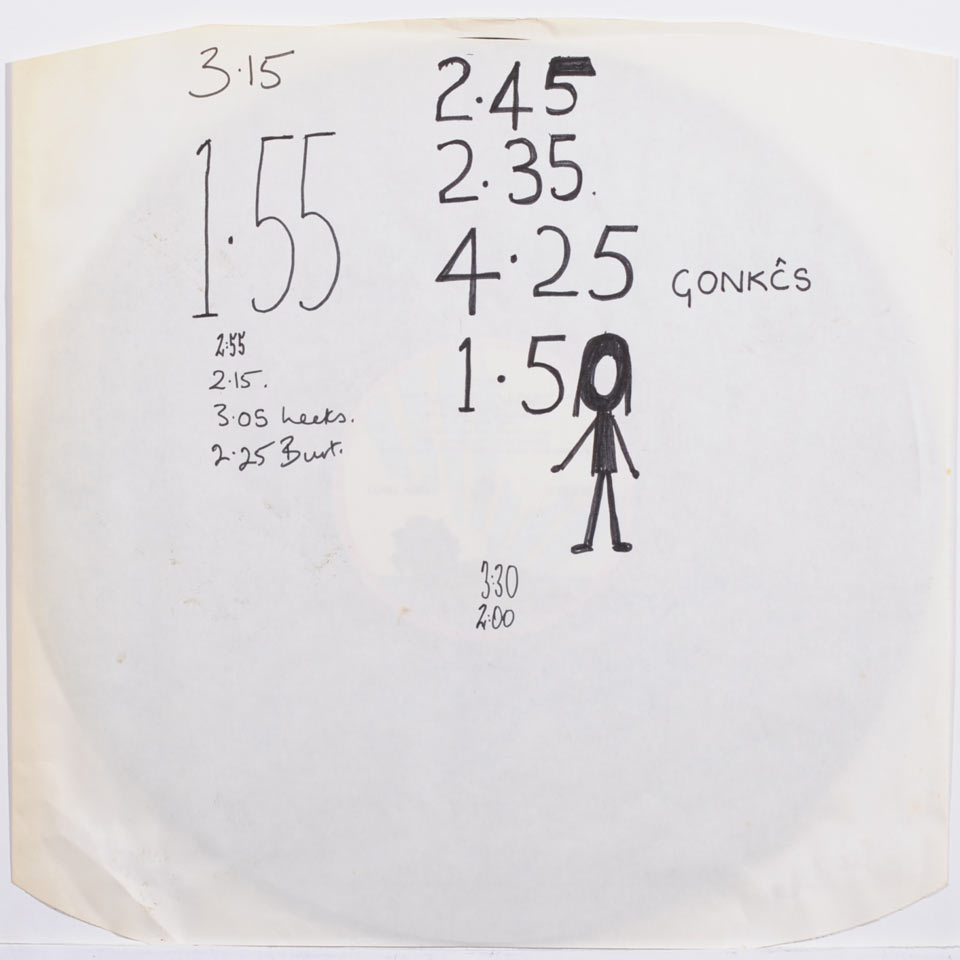 3·15
1·55
2:55
2·15.
3·05
2·25 Burt.
2·45
2·35.
4·25 ĢONKĈS
1·50
3:30
2:00